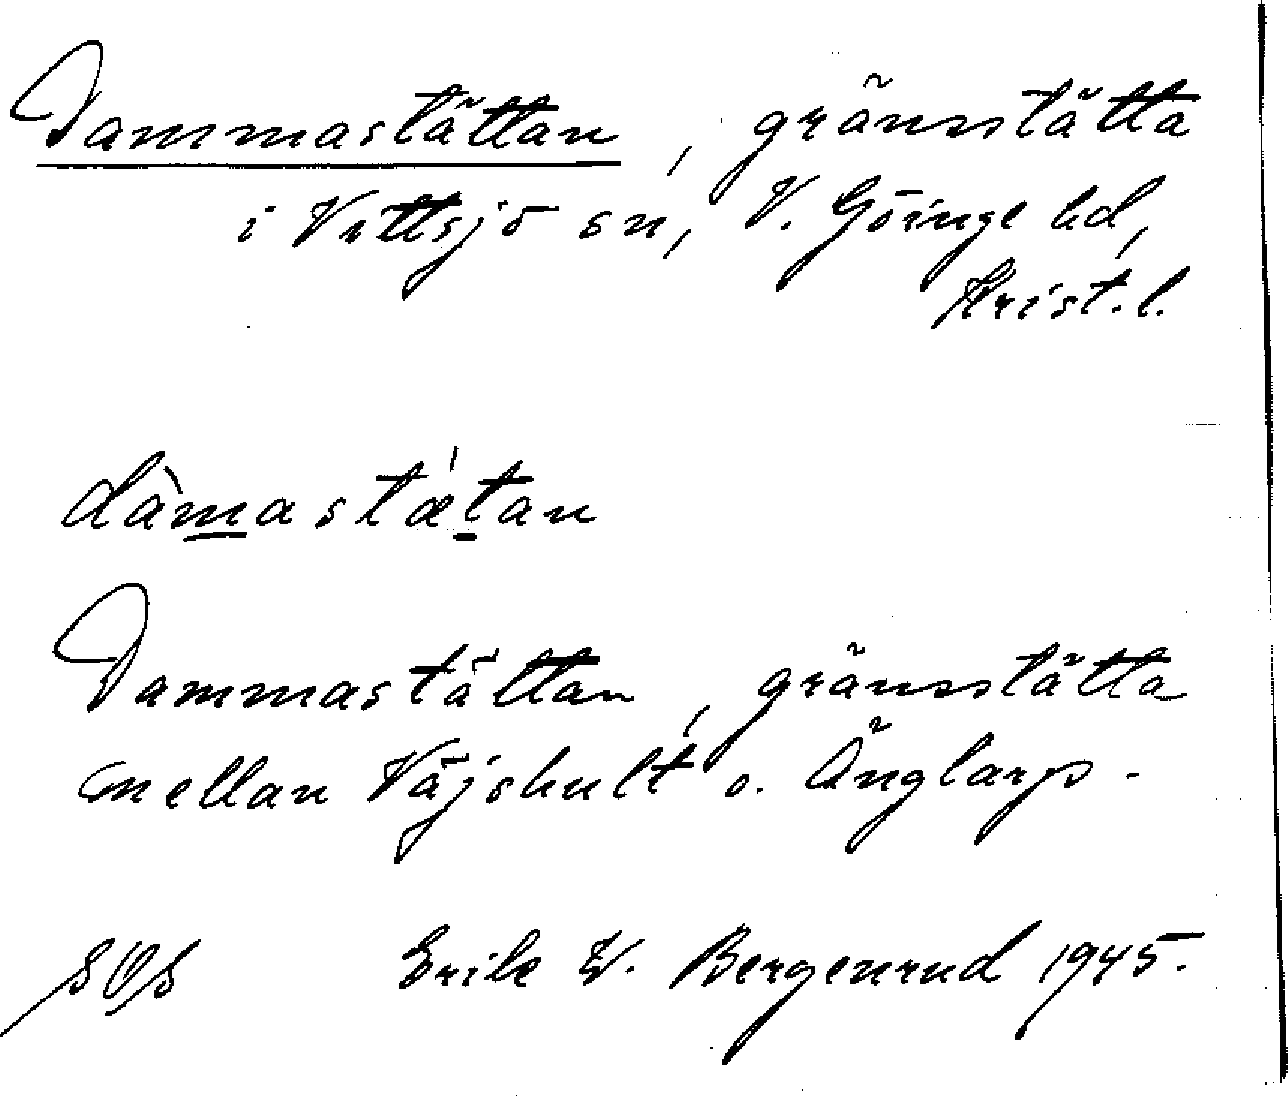 Dammastättan, gränsstätta
i Vittsjö sn, V. Göinge hd,
Krist. l.
dàmastǽtan
Dammastättan, gränsstätta
mellan Väjshult o. Änglarp.
SOS Erik W. Bergenrud 1945.